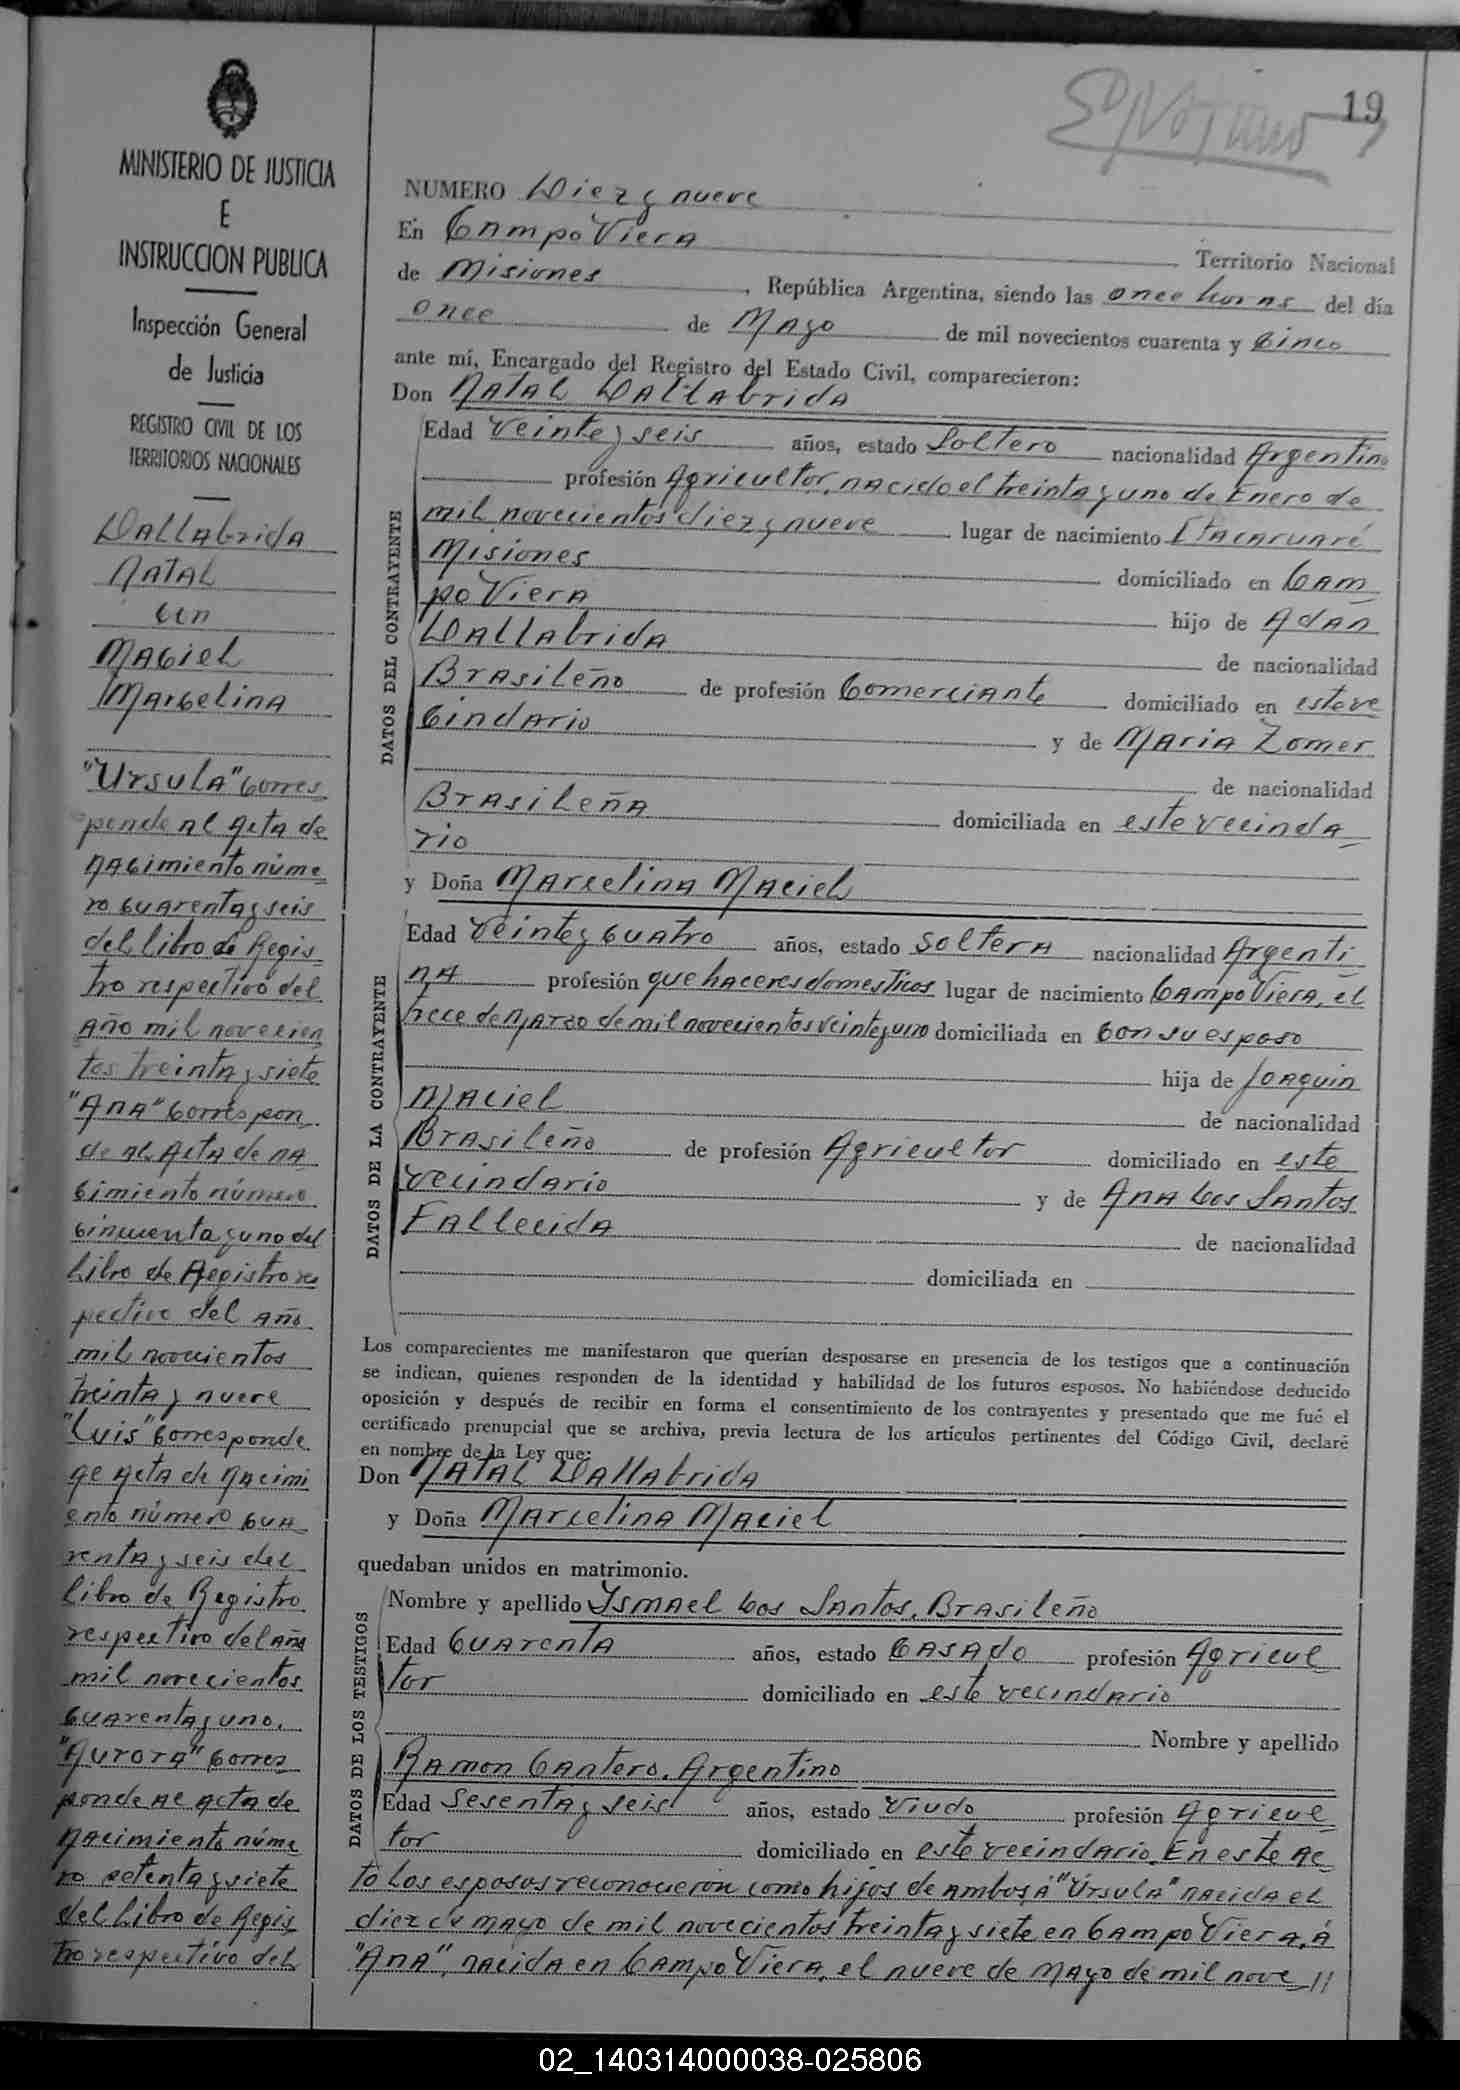 19
MINISTERIO DE JUSTICIA
E
INSTRUCCION PUBLICA
Inspección General
de Justicia
REGISTRO CIVIL DE LOS
TERRITORIOS NACIONALES
Dallabrida
Natal
con
Maciel
Marcelina
"Ursula" corres
ponde al Acta de
nacimiento núme
ro cuarenta y seis
del libro de Regis
tro respectivo del
año mil novecien
tos treinta y siete
"Ana" correspon
de al Acta de na
cimiento número
cincuenta y uno del
Libro de Registro res
pectivo del año
mil novecientos
treinta y nueve
"Luis" corresponde
al acta de nacimi
ento número cua
renta y seis del
libro de Registro
respectivo del año
mil novecientos
cuarenta y uno.
"Aurora" corres
ponde al acta de
nacimiento núme
ro setenta y siete
del Libro de Regis
tro respectivo del
NUMERO Diez y nueve
En Campo Viera Territorio Nacional
de Misiones, República Argentina, siendo las once horas del día
once de Mayo de mil novecientos cuarenta y Cinco
ante mí, Encargado del Registro del Estado Civil, comparecieron:
Don Natal Dallabrida
DATOS DEL CONTRAYENTE
Edad veinte y seis años, estado Soltero nacionalidad Argentino
profesión Agricultor, nacido el treinta y uno de Enero de
mil novecientos diez y nueve lugar de nacimiento Itacaruaré
Misiones domiciliado en Cam
po Viera hijo de Adan
Dallabrida de nacionalidad
Brasileño de profesión Comerciante domiciliado en este ve
cindario y de Maria Zomer
de nacionalidad
Brasileña domiciliada en este vecinda
rio
y Doña Marcelina Maciel
DATOS DE LA CONTRAYENTE
Edad veinte y cuatro años, estado soltera nacionalidad Argenti
na profesión que haceres domesticos lugar de nacimiento Campo Viera, el
trece de Marzo de mil novecientos veinte y uno domiciliada en con su esposo
hija de Joaquin
Maciel de nacionalidad
Brasileño de profesión Agricultor domiciliado en este
vecindario y de Ana Dos Santos
Fallecida de nacionalidad
domiciliada en
Los comparecientes me manifestaron que querían desposarse en presencia de los testigos que a continuación
se indican, quienes responden de la identidad y habilidad de los futuros esposos. No habiéndose deducido
oposición y después de recibir en forma el consentimiento de los contrayentes y presentado que me fué el
certificado prenupcial que se archiva, previa lectura de los artículos pertinentes del Código Civil, declaré
en nombre de la Ley que:
Don Natal Dallabrida
y Doña Marcelina Maciel
quedaban unidos en matrimonio.
DATOS DE LOS TESTIGOS
Nombre y apellido Ismael Dos Santos, Brasileño
Edad Cuarenta años, estado Casado profesión Agricul
tor domiciliado en este vecindario
Nombre y apellido
Ramon Cantero, Argentino
Edad Sesenta y seis años, estado Viudo profesión Agricul
tor domiciliado en este vecindario. En este Ac
to los esposos reconocieron como hijos de ambos, á "Úrsula" nacida el
diez de mayo de mil novecientos treinta y siete en Campo Viera, á
"Ana", nacida en Campo Viera, el nueve de Mayo de mil nove //
02_140314000038-025806